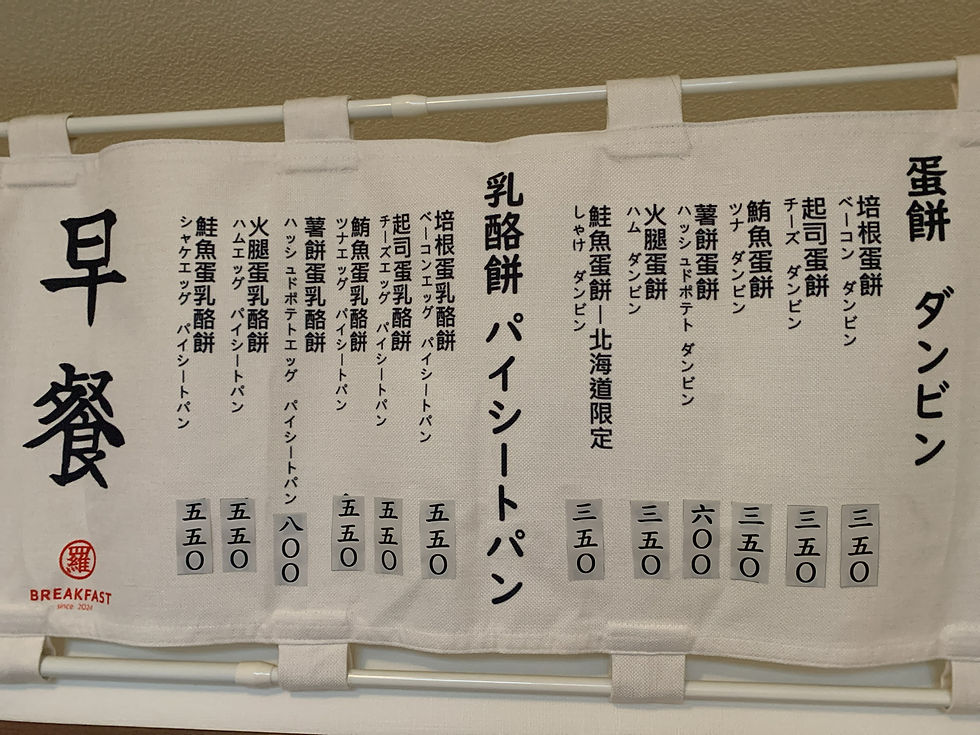 蛋餅 ダンビン
培根蛋餅
ベーコン ダンビン
三五〇
起司蛋餅
チーズ ダンビン
三五〇
鮪魚蛋餅
ツナ ダンビン
三五〇
薯餅蛋餅
ハッシュドポテト ダンビン
六〇〇
火腿蛋餅
ハム ダンビン
三五〇
鮭魚蛋餅—北海道限定
しゃけ ダンビン
三五〇
乳酪餅 パイシートパン
培根蛋乳酪餅
ベーコンエッグ パイシートパン
五五〇
起司蛋乳酪餅
チーズエッグ パイシートパン
五五〇
鮪魚蛋乳酪餅
ツナエッグ パイシートパン
五五〇
薯餅蛋乳酪餅
ハッシュドポテトエッグ パイシートパン
八〇〇
火腿蛋乳酪餅
ハムエッグ パイシートパン
五五〇
鮭魚蛋乳酪餅
シャケエッグ パイシートパン
五五〇
早餐
羅
BREAKFAST
since 2024